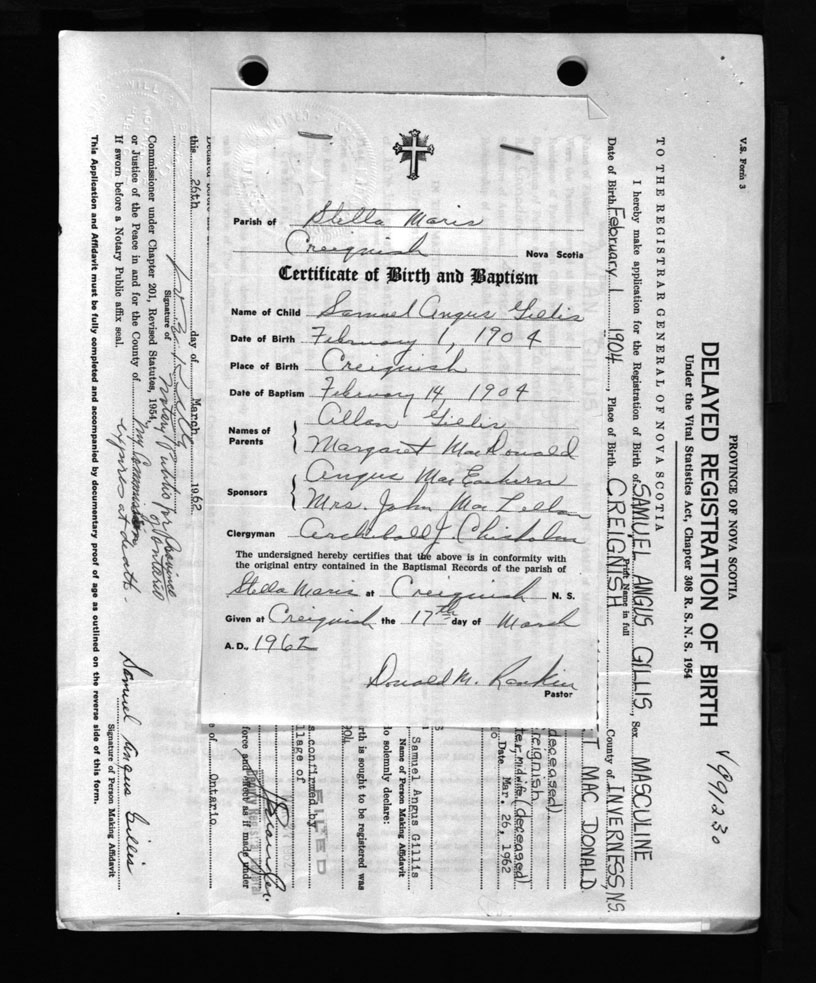 Parish of Stella Maris
Creignish Nova Scotia
Certificate of Birth and Baptism
Name of Child Samuel Angus Gillis
Date of Birth February 1, 1904
Place of Birth Creignish
Date of Baptism February 14, 1904
Names of Parents { Allan Gillis
Margaret MacDonald
Sponsors { Angus MacEachern
Mrs. John MacLellan
Clergyman Archibald J. Chisholm
The undersigned hereby certifies that the above is in conformity with
the original entry contained in the Baptismal Records of the parish of
Stella Maris at Creignish N. S.
Given at Creignish the 17th day of March
A.D., 1962
Donald M. Rankin
Pastor
V.S. Form 3
PROVINCE OF NOVA SCOTIA
DELAYED REGISTRATION OF BIRTH
Under the Vital Statistics Act, Chapter 308 R. S. N. S. 1954
V 99230
TO THE REGISTRAR GENERAL OF NOVA SCOTIA
I hereby make application for the Registration of Birth of SAMUEL ANGUS GILLIS, Sex MASCULINE
Print Name in full
Date of Birth February 1 1904, Place of Birth CREIGNISH County of INVERNESS, NS.
MAC DONALD
deceased).
reignish
ter, midwife, (deceased)
Date Mar. 26, 1962
Samuel Angus Gillis
Name of Person Making Affidavit
do solemnly declare:
rth is sought to be registered was
904
FILED
s confirmed by
llage of
force and effect as if made under
e of Ontario
this 26th day of March 1962
Signature of
Notary Public for Province of Ontario
Commissioner under Chapter 201, Revised Statutes, 1954
or Justice of the Peace in and for the County of My Commission
expires at death.
If sworn before a Notary Public affix seal.
Samuel Angus Gillis
Signature of Person Making Affidavit
This Application and Affidavit must be fully completed and accompanied by documentary proof of age as outlined on the reverse side of this form.